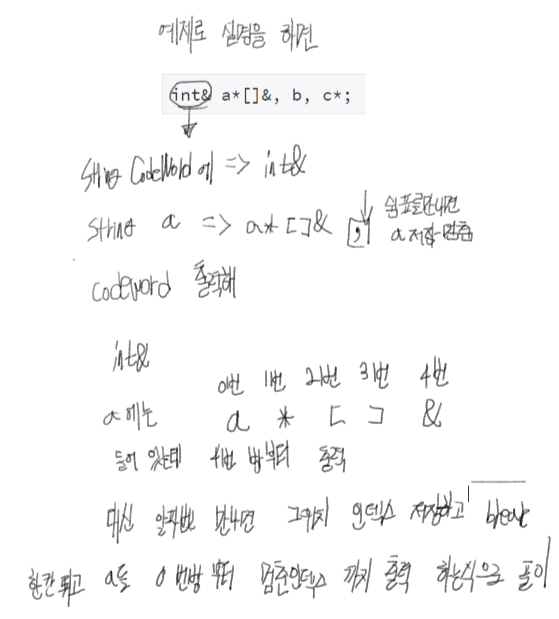 예제로 설명을 하면
int& a*[]&, b, c*;
string CodeWord에 => int&
string a => a*[]& , 쉼표를 만나면
a 저장 멈춤
codeword 출력해
int&
0번 1번 2번 3번 4번
a에는 a * [ ] &
들어 있는데 4번 방부터 출력
대신 알파벳 만나면 그위치 인덱스 저장하고 break
한칸 띄고 a를 0번방 부터 멈춘인덱스 까지 출력 하는식으로 풀이